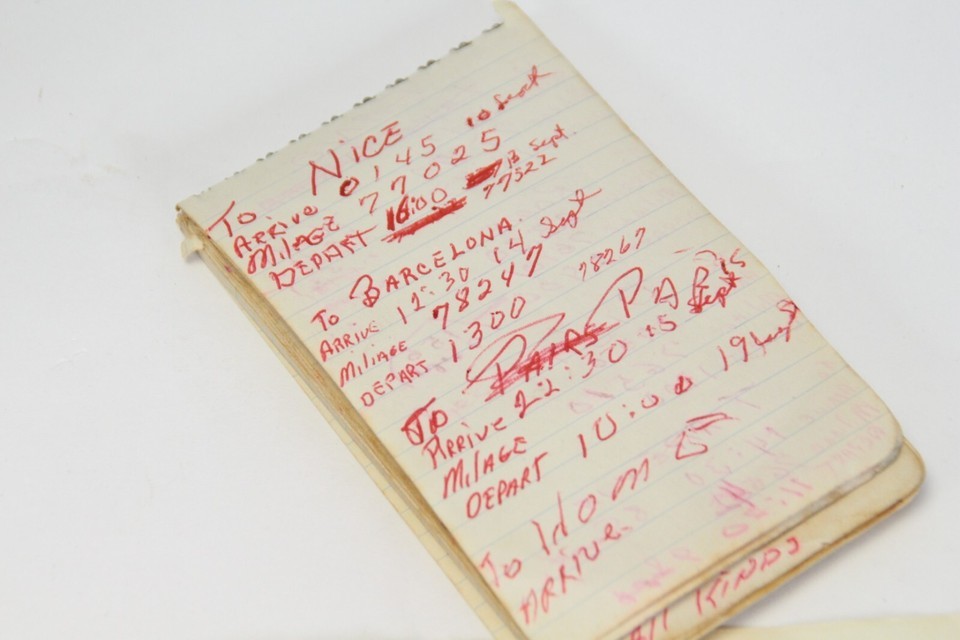 To NICE
ARRIVE 0145 10 Sept
MilAGE 77025
DEPART 16:00 13 Sept.
77522
To BARCELONA.
ARRIVE 12:30 14 Sept
MiliAGE 78247
DEPART 1300 78267
To PARIS
ARRIVE 22:30 15 Sept
MilAGE
DEPART 10:00 19
To HomE
ARRIVE.
All KINDS